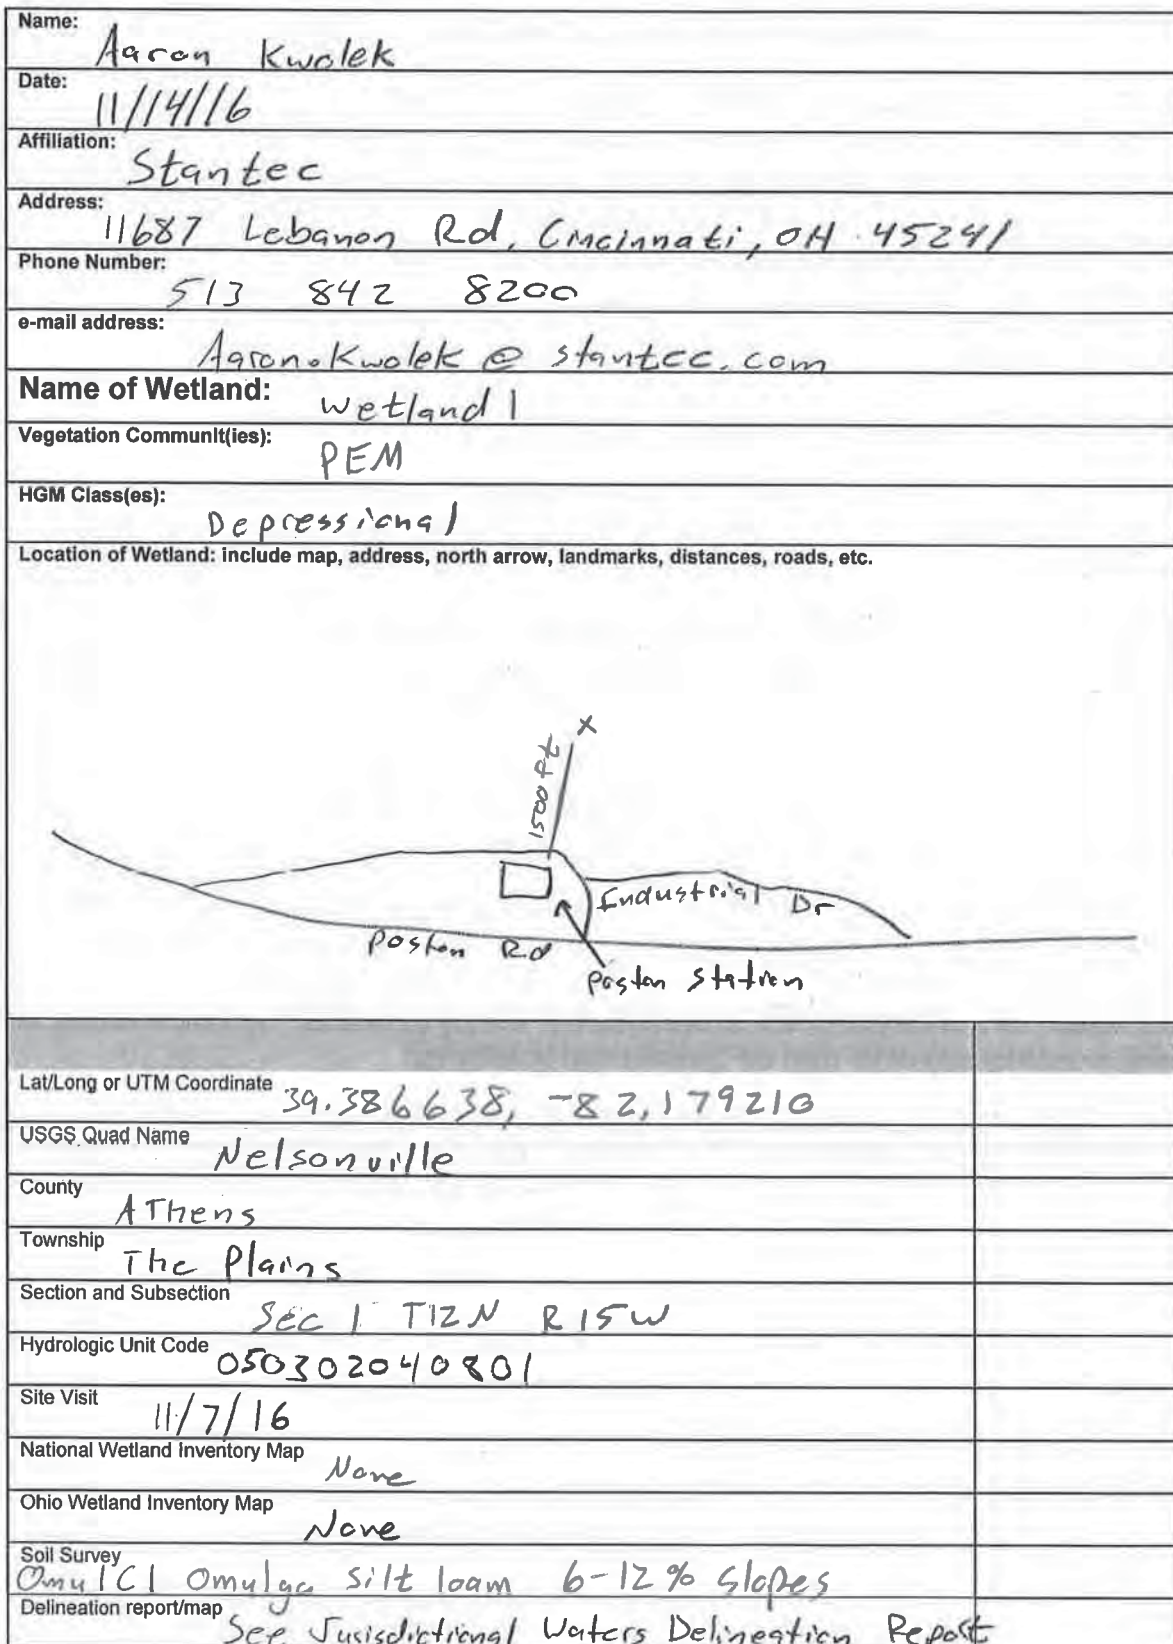 Name:
Aaron Kwolek
Date:
11/14/16
Affiliation:
Stantec
Address:
11687 Lebanon Rd, Cincinnati, OH 45241
Phone Number:
513 842 8200
e-mail address:
Aaron.Kwolek@stantec.com
Name of Wetland:
Wetland 1
Vegetation Communit(ies):
PEM
HGM Class(es):
Depressional
Location of Wetland: include map, address, north arrow, landmarks, distances, roads, etc.
X
1500 ft
Industrial Dr
Poston Rd
Poston Station
Lat/Long or UTM Coordinate
39.386638, -82.179210
USGS Quad Name
Nelsonville
County
Athens
Township
The Plains
Section and Subsection
Sec 1 T12N R15W
Hydrologic Unit Code
050302040801
Site Visit
11/7/16
National Wetland Inventory Map
None
Ohio Wetland Inventory Map
None
Soil Survey
Omu1C1 Omulga silt loam 6-12% slopes
Delineation report/map
See Jurisdictional Waters Delineation Report